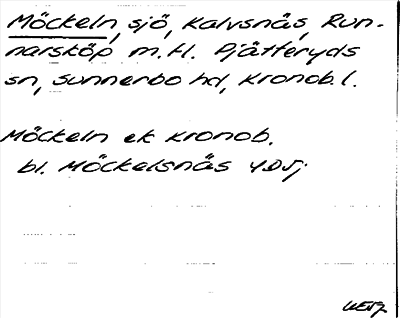 Möckeln, sjö, Kalvsnäs, Run-
narsköp m.fl. Pjätteryds
sn, Sunnerbo hd, Kronob. l.
Möckeln ek Kronob.
bl. Möckelsnäs 4D5j